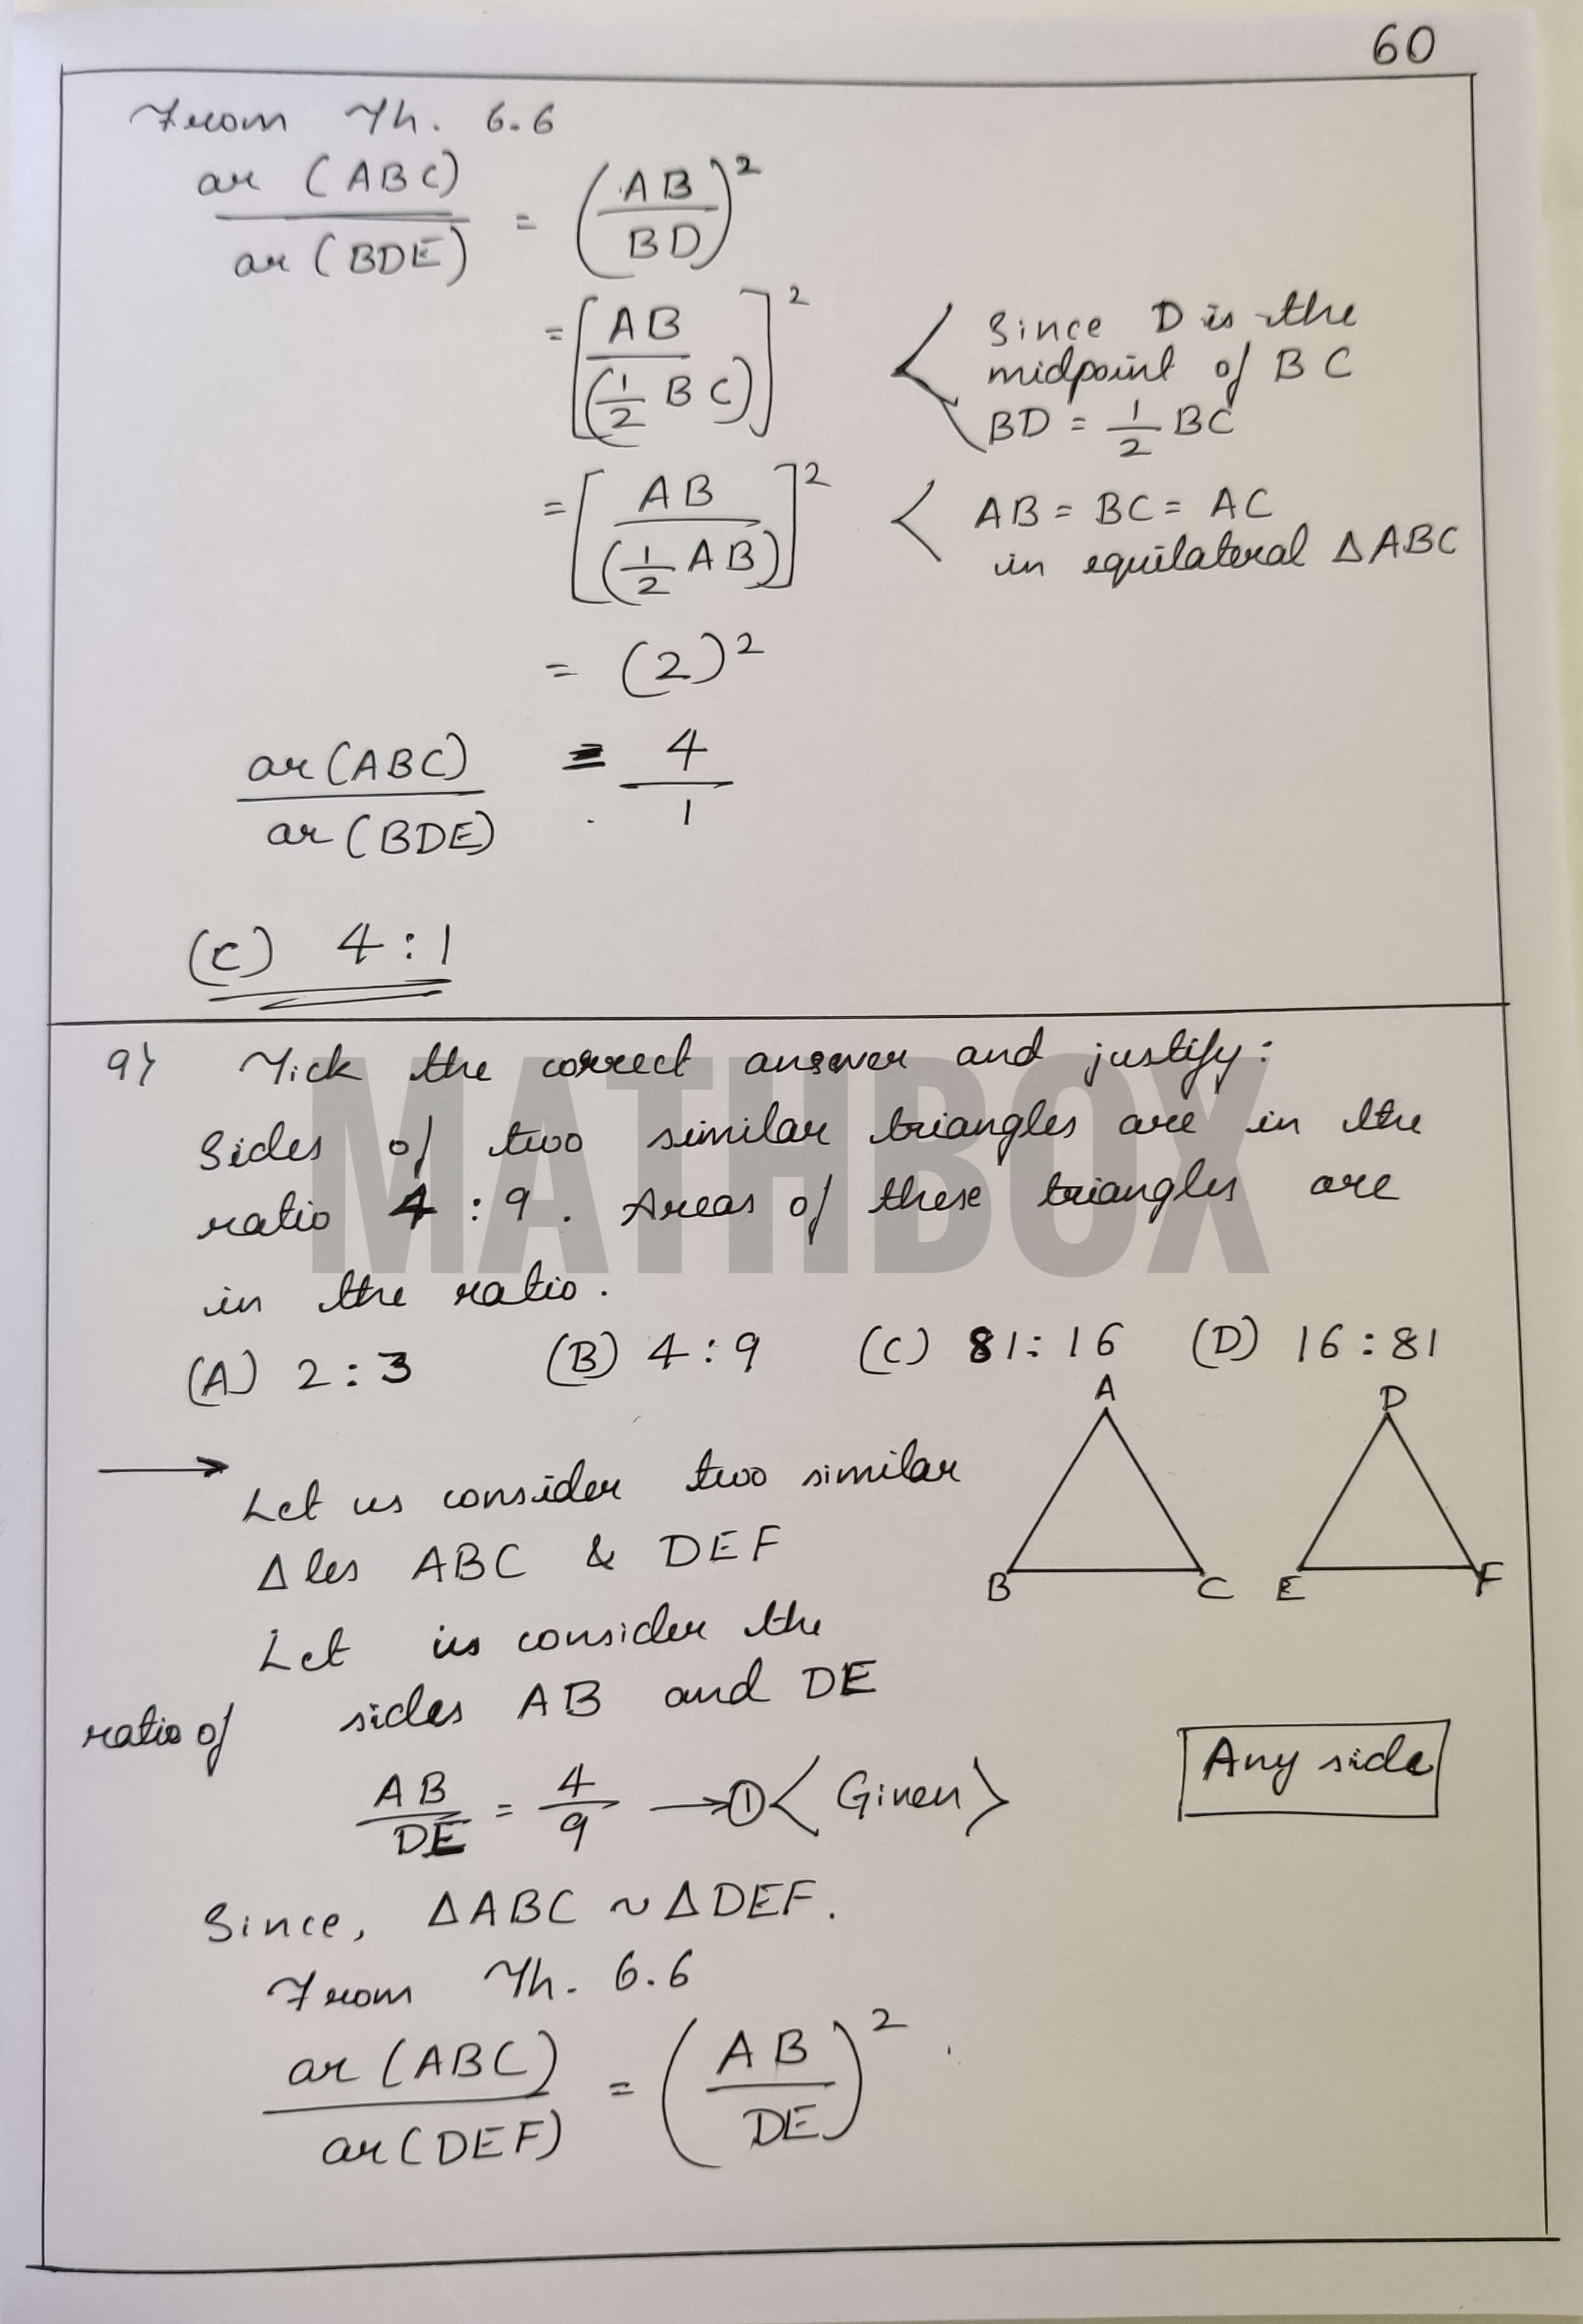 60
From Th. 6.6
ar (ABC) / ar (BDE) = (AB / BD)²
= [AB / (1/2 BC)]² < Since D is the
midpoint of BC
BD = 1/2 BC
= [AB / (1/2 AB)]² < AB = BC = AC
in equilateral ΔABC
= (2)²
ar (ABC) / ar (BDE) = 4 / 1
(C) 4 : 1
9) Tick the correct answer and justify:
Sides of two similar triangles are in the
ratio 4 : 9. Areas of these triangles are
in the ratio.
(A) 2 : 3 (B) 4 : 9 (C) 81 : 16 (D) 16 : 81
A D
→ Let us consider two similar
Δles ABC & DEF
B C E F
Let us consider the
ratio of sides AB and DE
Any side
AB / DE = 4 / 9 → ① < Given >
Since, ΔABC ~ ΔDEF.
From Th. 6.6
ar (ABC) / ar (DEF) = (AB / DE)²
MATHBOX